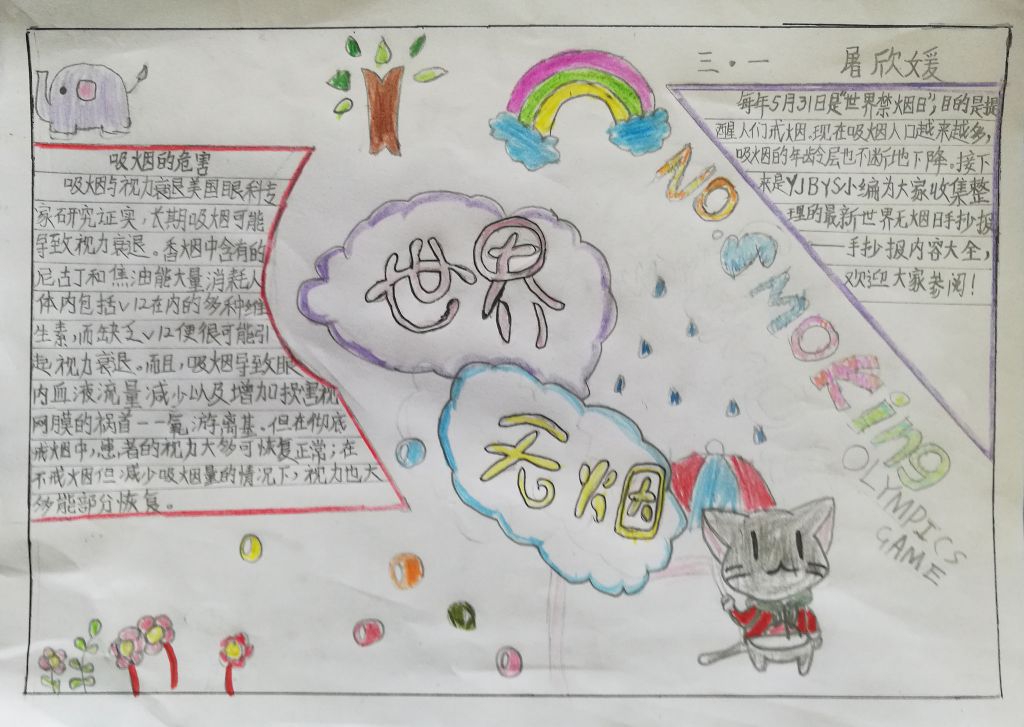 三·一 屠欣媛
每年5月31日是"世界禁烟日",目的是提
醒人们戒烟.现在吸烟人口越来越多,
吸烟的年龄层也不断地下降.接下
来是YJBYS小编为大家收集整
理的最新世界无烟日手抄报
——手抄报内容大全,
欢迎大家参阅!
吸烟的危害
吸烟与视力衰退美国眼科专
家研究证实,长期吸烟可能
导致视力衰退。香烟中含有的
尼古丁和焦油能大量消耗人
体内包括V12在内的多种维
生素,而缺乏V12便很可能引
起视力衰退。而且,吸烟导致眼
内血液流量减少以及增加损害视
网膜的祸首——氧游离基.但在彻底
戒烟中,患者的视力大多可恢复正常;在
不戒烟但减少吸烟量的情况下,视力也大
多能部分恢复。
世界
无烟
NO.SMOKing
OLYMPICS
GAME